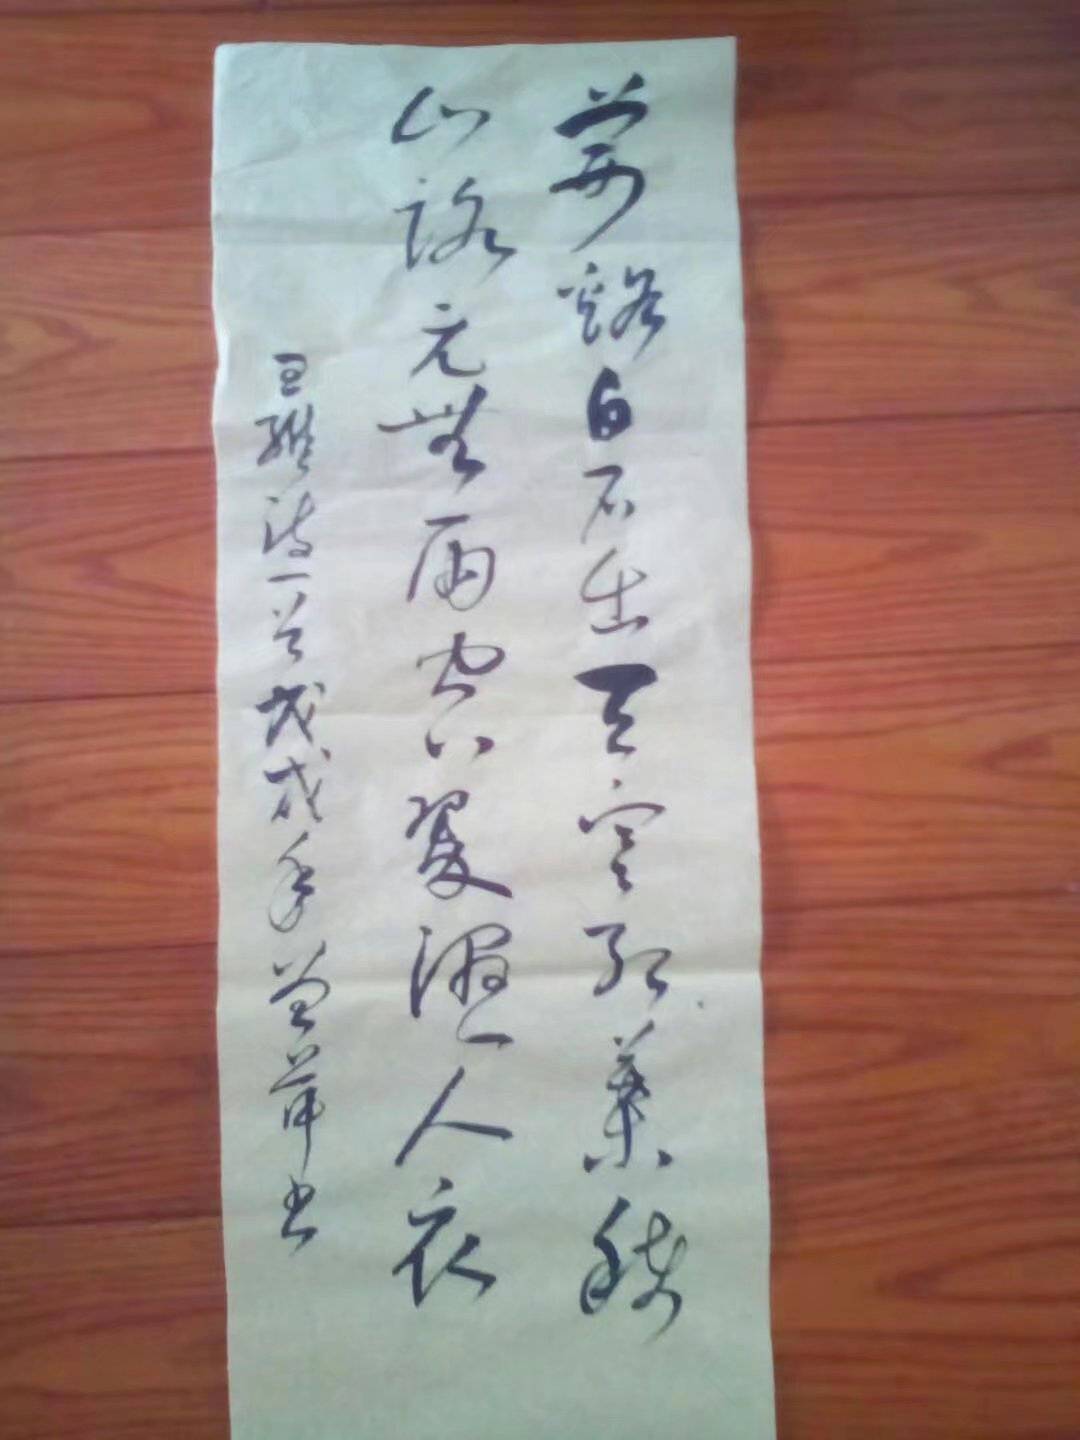 荊谿白石出天寒紅葉稀
山路元無雨空翠濕人衣
王維詩一首戊戌年曾萍书